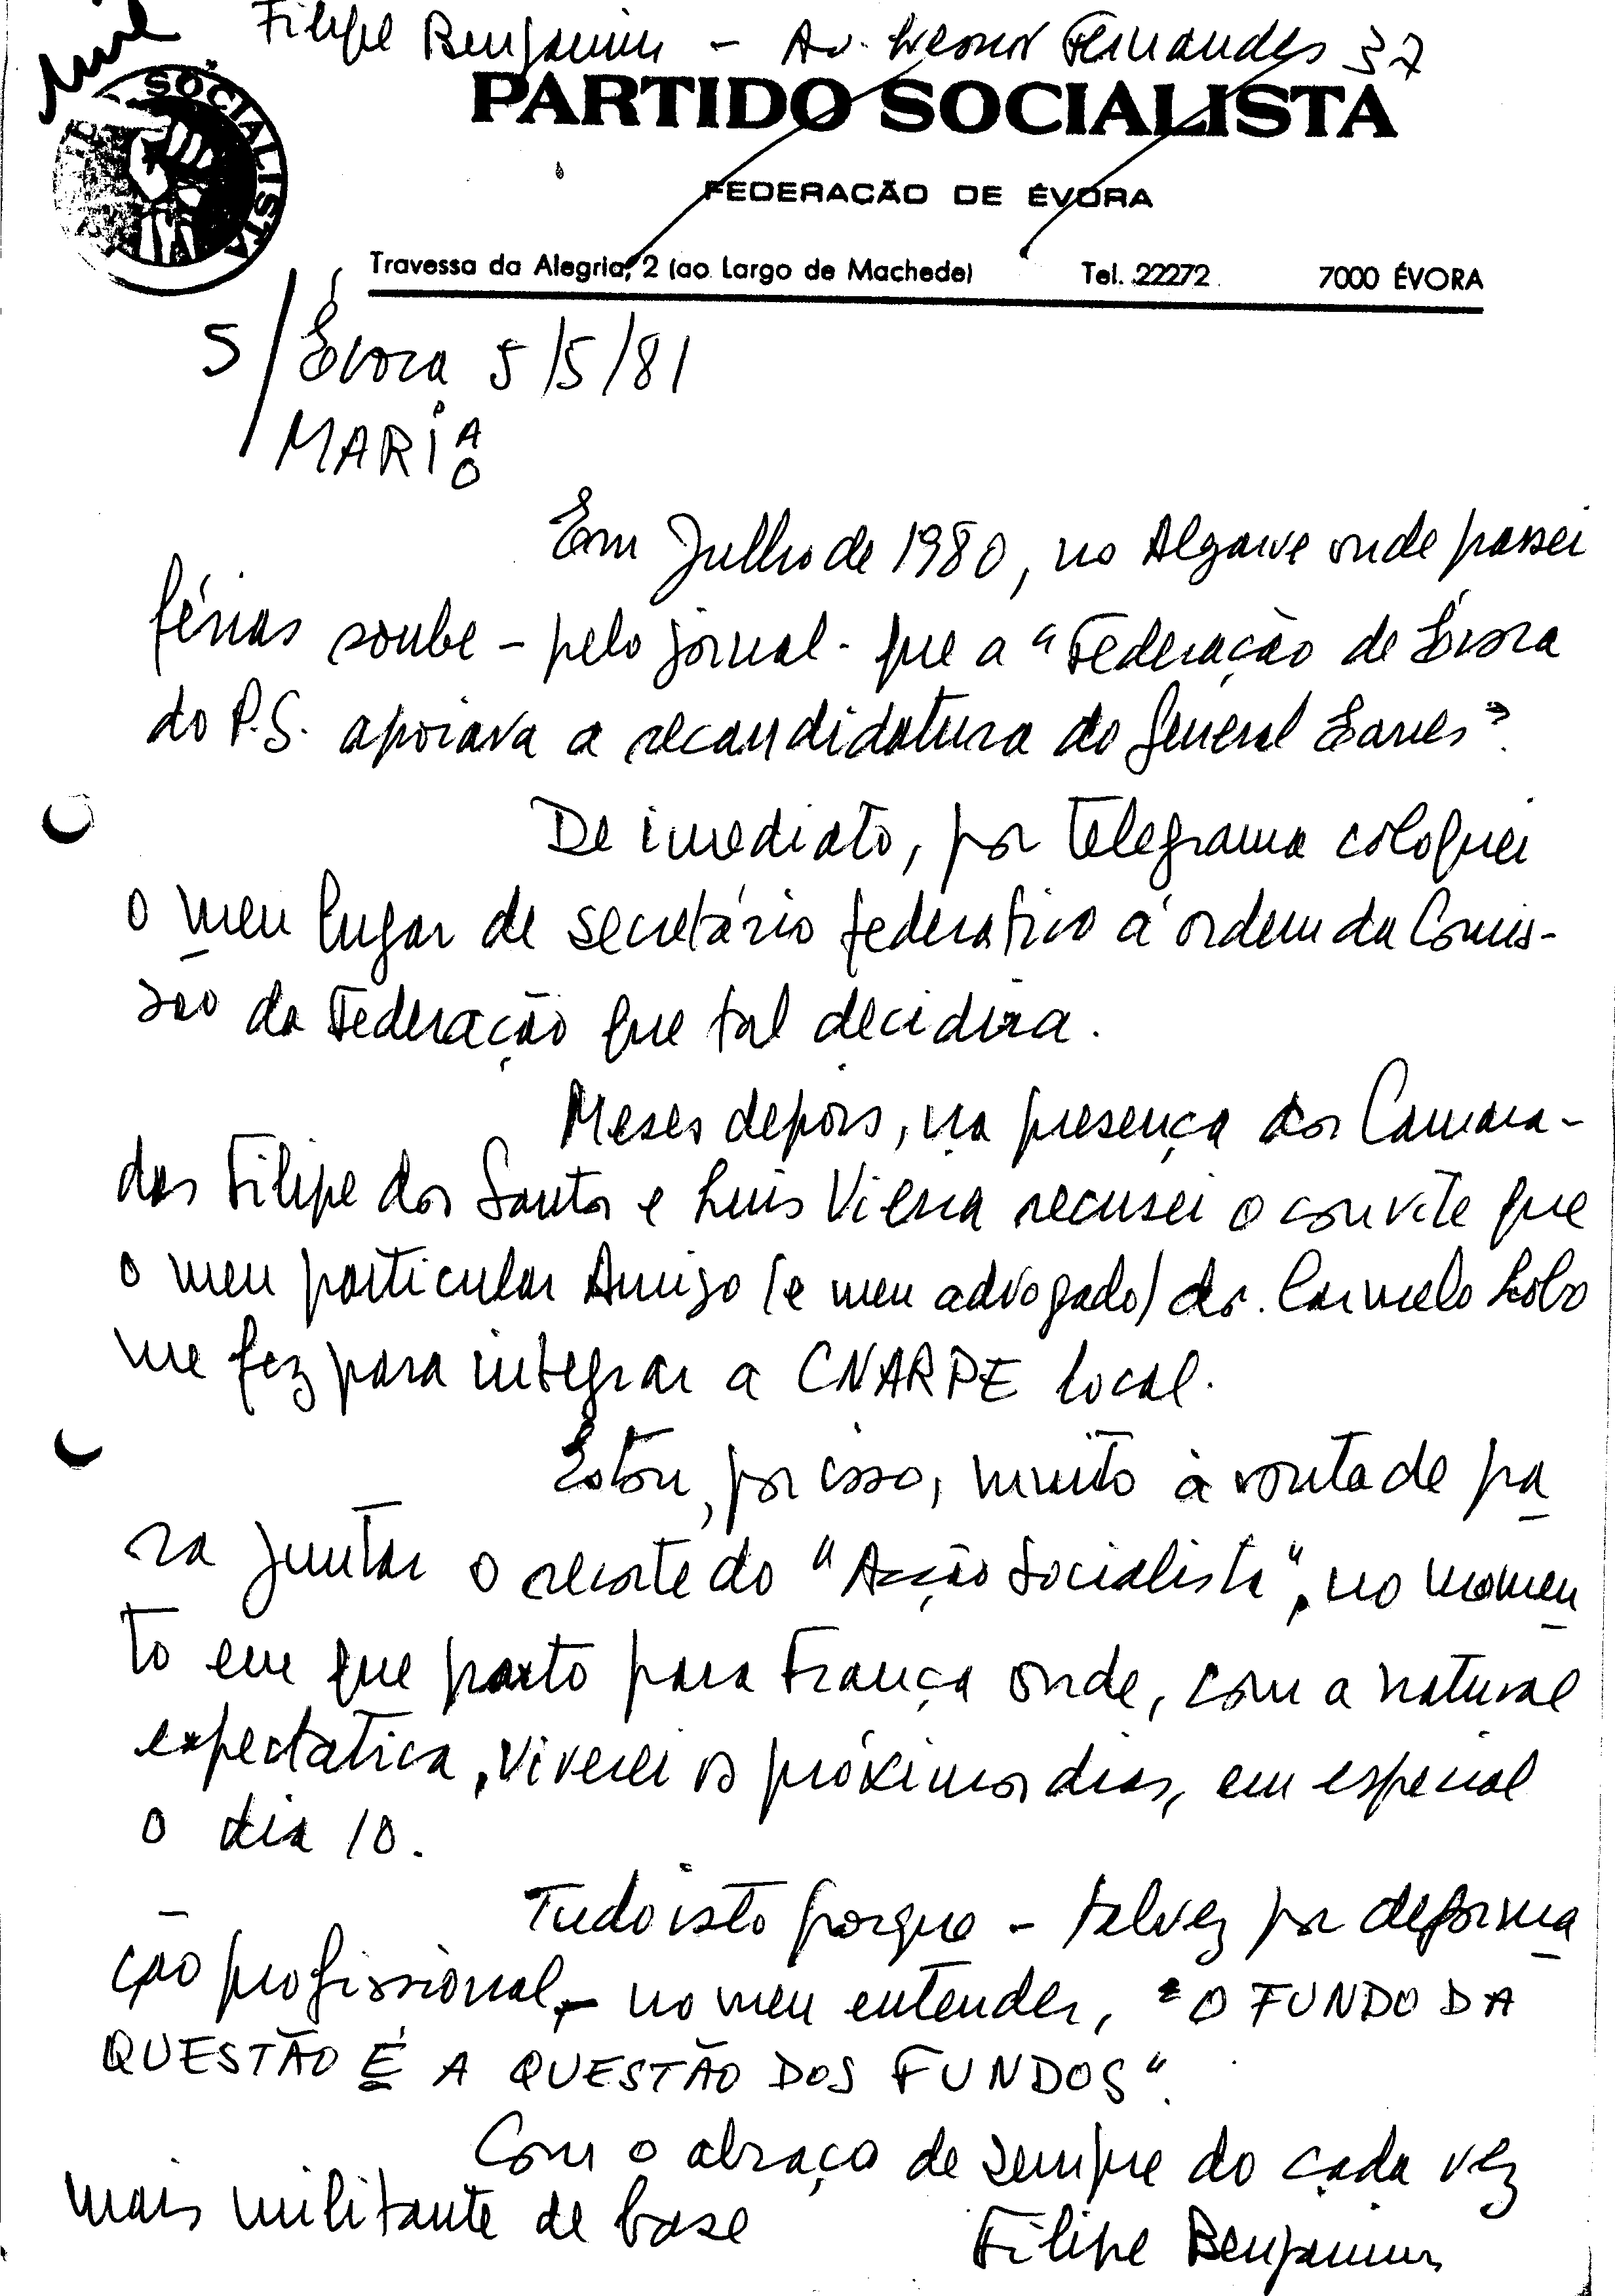 Filipe Benjamim - Av. Leonor Fernandes 37
SOCIALISTA
PARTIDO SOCIALISTA
FEDERAÇÃO DE ÉVORA
Travessa da Alegria, 2 (ao Largo de Machede) Tel. 22272 7000 ÉVORA
S/ Évora 5/5/81
MARIA
O
Em Julho de 1980, no Algarve onde passei
férias soube - pelo jornal - que a "Federação de Évora
do P.S. apoiava a recandidatura do General Eanes".
De imediato, por telegrama coloquei
o meu lugar de secretário federativo à ordem da Comis-
são da Federação que tal decidira.
Meses depois, na presença dos Camara-
das Filipe dos Santos e Luis Vieira recusei o convite que
o meu particular Amigo (e meu advogado) dr. Carmelo Lobo
me fez para integrar a CNARPE local.
Estou, por isso, muito à vontade pa
ra juntar o recorte do "Acção Socialista", no momen
to em que parto para França onde, com a natural
expectativa, viverei os próximos dias, em especial
o dia 10.
Tudo isto porque - talvez por deforma
ção profissional, - no meu entender, "O FUNDO DA
QUESTÃO É A QUESTÃO DOS FUNDOS".
Com o abraço de sempre do cada vez
mais militante de base
Filipe Benjamim